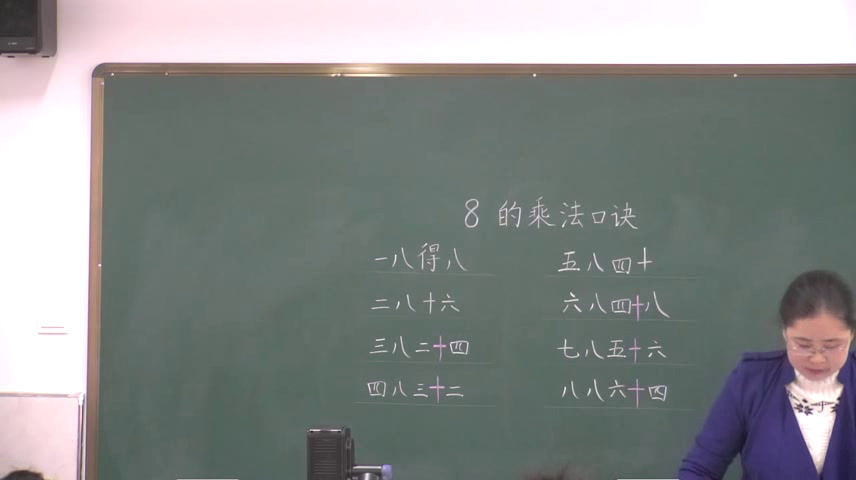 8的乘法口诀
一八得八
二八十六
三八二十四
四八三十二
五八四十
六八四十八
七八五十六
八八六十四